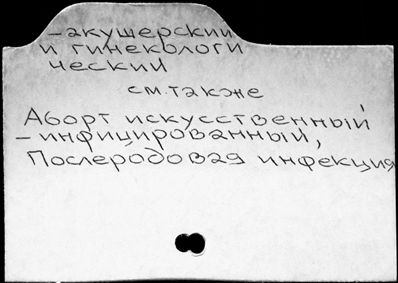 -акушерский
и гинекологи
ческий
см.также
Аборт искусственный
-инфицированный,
Послеродовая инфекция